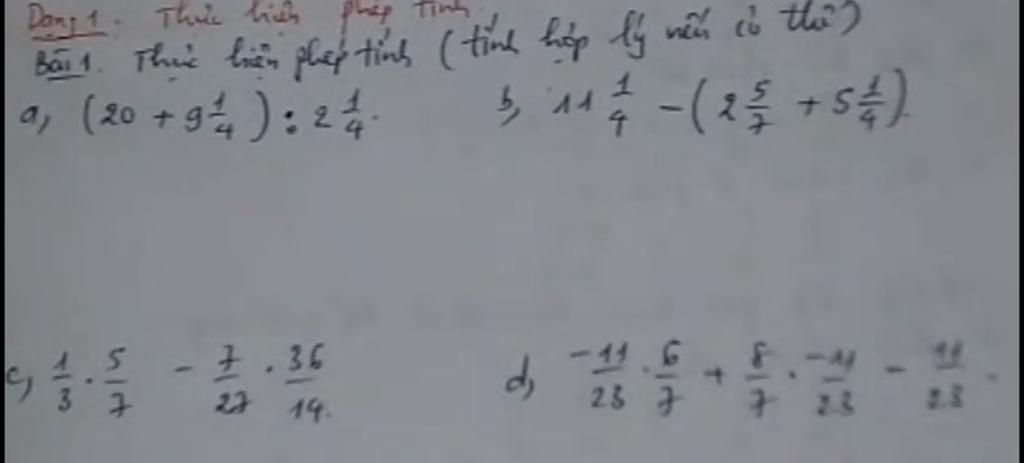 Dạng 1. Thực hiện phép tính.
Bài 1. Thực hiện phép tính (tính hợp lý nếu có thể)
a, (20 + 9 1/4) : 2 1/4. b, 11 1/4 - (2 5/7 + 5 1/4).
c, 1/3 . 5/7 - 7/27 . 36/14. d, -11/23 . 6/7 + 8/7 . -11/23 - 11/23.